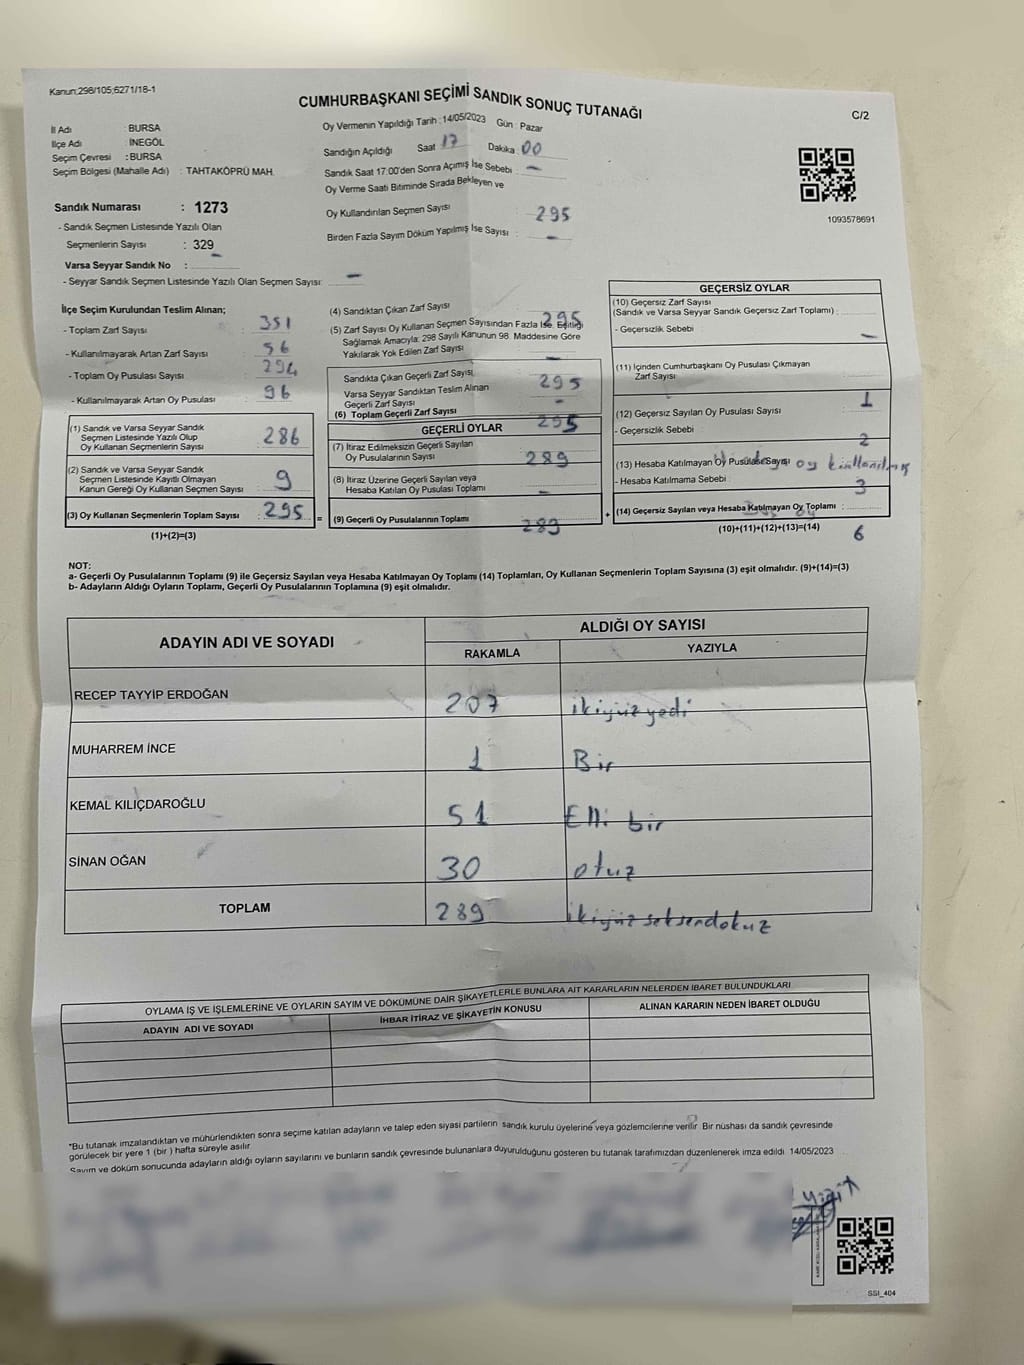 Kanun;298/105;6271/18-1
CUMHURBAŞKANI SEÇİMİ SANDIK SONUÇ TUTANAĞI
C/2
İl Adı : BURSA
İlçe Adı : İNEGÖL
Seçim Çevresi : BURSA
Seçim Bölgesi (Mahalle Adı) : TAHTAKÖPRÜ MAH.
Oy Vermenin Yapıldığı Tarih : 14/05/2023 Gün : Pazar
Sandığın Açıldığı Saat 17 Dakika : 00
Sandık Saat 17:00'den Sonra Açımış İse Sebebi : -
Oy Verme Saati Bitiminde Sırada Bekleyen ve
Oy Kullandırılan Seçmen Sayısı : 295
Birden Fazla Sayım Döküm Yapılmış İse Sayısı : -
1093578691
Sandık Numarası : 1273
- Sandık Seçmen Listesinde Yazılı Olan
Seçmenlerin Sayısı : 329
Varsa Seyyar Sandık No : -
- Seyyar Sandık Seçmen Listesinde Yazılı Olan Seçmen Sayısı: -
İlçe Seçim Kurulundan Teslim Alınan;
- Toplam Zarf Sayısı : 351
- Kullanılmayarak Artan Zarf Sayısı : 56
- Toplam Oy Pusulası Sayısı
- Kullanılmayarak Artan Oy Pusulası : 96
(1) Sandık ve Varsa Seyyar Sandık
Seçmen Listesinde Yazılı Olup
Oy Kullanan Seçmenlerin Sayısı : 286
(2) Sandık ve Varsa Seyyar Sandık
Seçmen Listesinde Kayıtlı Olmayan
Kanun Gereği Oy Kullanan Seçmen Sayısı : 9
(3) Oy Kullanan Seçmenlerin Toplam Sayısı : 295 =
(1)+(2)=(3)
(4) Sandıktan Çıkan Zarf Sayısı 295
(5) Zarf Sayısı Oy Kullanan Seçmen Sayısından Fazla İse, Eşitliği
Sağlamak Amacıyla; 298 Sayılı Kanunun 98. Maddesine Göre
Yakılarak Yok Edilen Zarf Sayısı -
Sandıkta Çıkan Geçerli Zarf Sayısı 295
Varsa Seyyar Sandıktan Teslim Alınan
Geçerli Zarf Sayısı -
(6) Toplam Geçerli Zarf Sayısı 295
GEÇERLİ OYLAR
(7) İtiraz Edilmeksizin Geçerli Sayılan
Oy Pusulalarının Sayısı 289
(8) İtiraz Üzerine Geçerli Sayılan veya
Hesaba Katılan Oy Pusulası Toplamı -
(9) Geçerli Oy Pusulalarının Toplamı 289 +
GEÇERSİZ OYLAR
(10) Geçersiz Zarf Sayısı
(Sandık ve Varsa Seyyar Sandık Geçersiz Zarf Toplamı) :
- Geçersizlik Sebebi : -
(11) İçinden Cumhurbaşkanı Oy Pusulası Çıkmayan
Zarf Sayısı : 1
(12) Geçersiz Sayılan Oy Pusulası Sayısı
- Geçersizlik Sebebi : 2
(13) Hesaba Katılmayan Oy Pusulası Sayısı oy kullanılmış
- Hesaba Katılmama Sebebi : 3
(14) Geçersiz Sayılan veya Hesaba Katılmayan Oy Toplamı :
(10)+(11)+(12)+(13)=(14) 6
NOT:
a- Geçerli Oy Pusulalarının Toplamı (9) ile Geçersiz Sayılan veya Hesaba Katılmayan Oy Toplamı (14) Toplamları, Oy Kullanan Seçmenlerin Toplam Sayısına (3) eşit olmalıdır. (9)+(14)=(3)
b- Adayların Aldığı Oyların Toplamı, Geçerli Oy Pusulalarının Toplamına (9) eşit olmalıdır.
ADAYIN ADI VE SOYADI
ALDIĞI OY SAYISI
RAKAMLA YAZIYLA
RECEP TAYYİP ERDOĞAN 207 ikiyüz yedi
MUHARREM İNCE 1 Bir
KEMAL KILIÇDAROĞLU 51 Elli bir
SİNAN OĞAN 30 otuz
TOPLAM 289 ikiyüz seksendokuz
OYLAMA İŞ VE İŞLEMLERİNE VE OYLARIN SAYIM VE DÖKÜMÜNE DAİR ŞİKAYETLERLE BUNLARA AİT KARARLARIN NELERDEN İBARET BULUNDUKLARI
ADAYIN ADI VE SOYADI İHBAR İTİRAZ VE ŞİKAYETİN KONUSU ALINAN KARARIN NEDEN İBARET OLDUĞU
*Bu tutanak imzalandıktan ve mühürlendikten sonra seçime katılan adayların ve talep eden siyasi partilerin sandık kurulu üyelerine veya gözlemcilerine verilir. Bir nüshası da sandık çevresinde
görülecek bir yere 1 (bir ) hafta süreyle asılır.
Sayım ve döküm sonucunda adayların aldığı oyların sayılarını ve bunların sandık çevresinde bulunanlara duyurulduğunu gösteren bu tutanak tarafımızdan düzenlenerek imza edildi. 14/05/2023
Yiğit
SSI_404